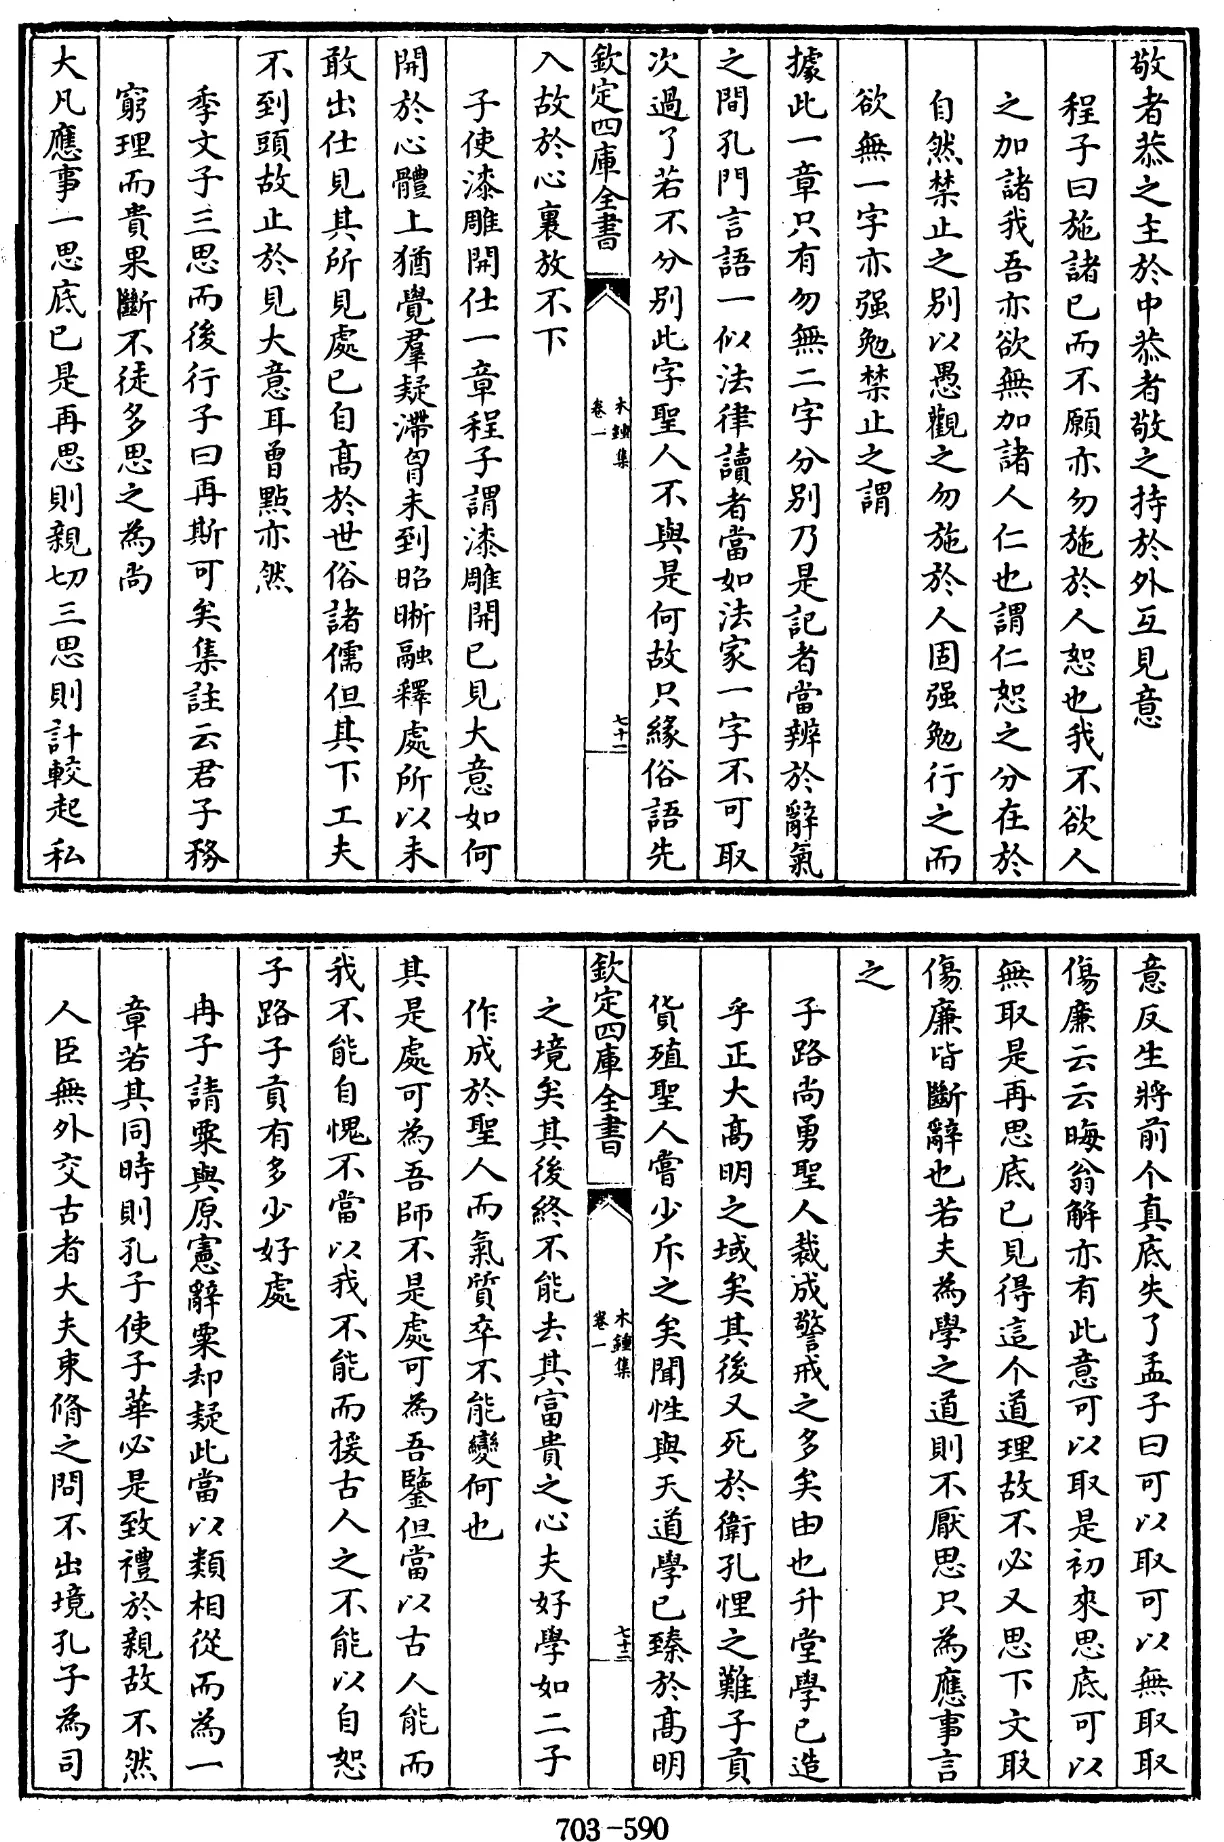 敬者恭之主於中恭者敬之持於外互見意
程子曰施諸已而不願亦勿施於人恕也我不欲人
之加諸我吾亦欲無加諸人仁也謂仁恕之分在於
自然禁止之别以愚觀之勿施於人固强勉行之而
欲無一字亦强勉禁止之謂
據此一章只有勿無二字分别乃是記者當辨於辭氣
之間孔門言語一似法律讀者當如法家一字不可取
次過了若不分别此字聖人不與是何故只緣俗語先
欽定四庫全書
木鐘集
卷一
七十一
入故於心裏放不下
子使漆雕開仕一章程子謂漆雕開已見大意如何
開於心體上猶覺羣疑滯胷未到昭晰融釋處所以未
敢出仕見其所見處已自髙於世俗諸儒但其下工夫
不到頭故止於見大意耳曾點亦然
季文子三思而後行子曰再斯可矣集註云君子務
窮理而貴果斷不徒多思之為尚
大凡應事一思底已是再思則親切三思則計較起私
意反生將前个真底失了孟子曰可以取可以無取取
傷廉云云晦翁解亦有此意可以取是初來思底可以
無取是再思底已見得這个道理故不必又思下文取
傷廉皆斷辭也若夫為學之道則不厭思只為應事言
之
子路尚勇聖人裁成警戒之多矣由也升堂學已造
乎正大髙明之域矣其後又死於衛孔悝之難子貢
貨殖聖人嘗少斥之矣聞性與天道學已臻於髙明
欽定四庫全書
木鐘集
卷一
七十二
之境矣其後終不能去其富貴之心夫好學如二子
作成於聖人而氣質卒不能變何也
其是處可為吾師不是處可為吾鑒但當以古人能而
我不能自愧不當以我不能而援古人之不能以自恕
子路子貢有多少好處
冉子請粟與原憲辭粟却疑此當以類相從而為一
章若其同時則孔子使子華必是致禮於親故不然
人臣無外交古者大夫束脩之問不出境孔子為司
703-590